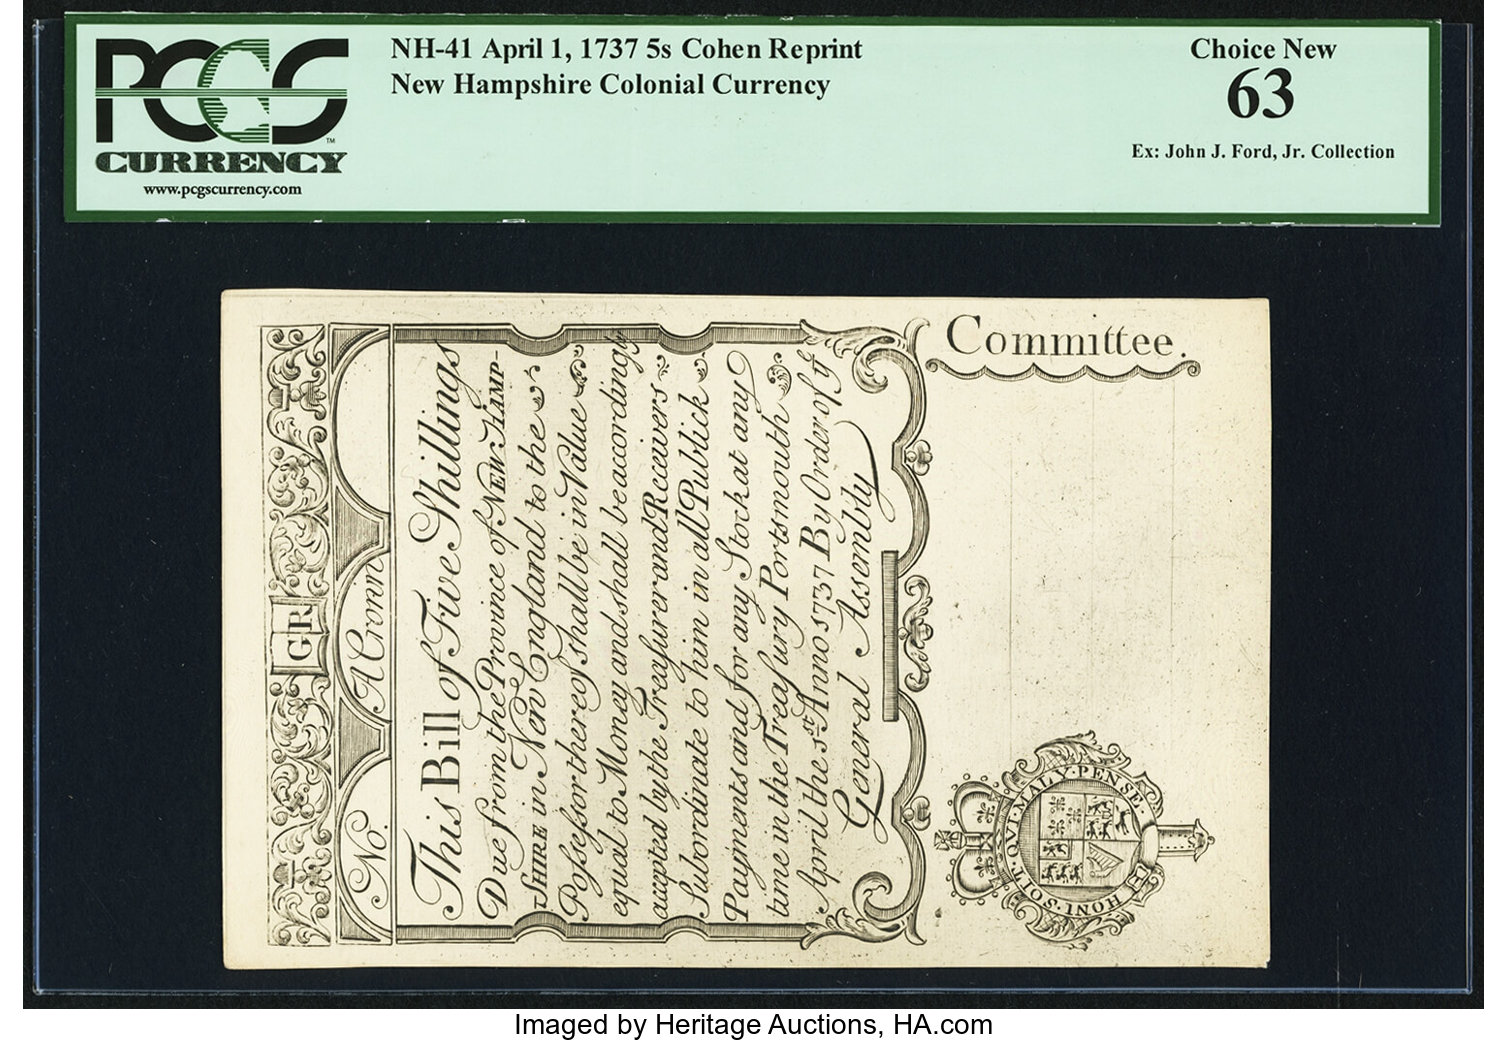 PCGS
CURRENCY
www.pcgscurrency.com
NH-41 April 1, 1737 5s Cohen Reprint
New Hampshire Colonial Currency
Choice New
63
Ex: John J. Ford, Jr. Collection
GR
No. A Crown
This Bill of Five Shillings
Due from the Province of NEW HAMP-
SHIRE in New England to the
Possessor thereof shall be in Value
equal to Money and shall be accordingly
accepted by the Treasurer and Receivers
Subordinate to him in all Publick
Payments and for any Stock at any
time in the Treasury Portsmouth
April the 1st Anno 1737 By Order of ye
General Assembly
Committee.
HONI·SOIT·QVI·MALY·PENSE·
Imaged by Heritage Auctions, HA.com